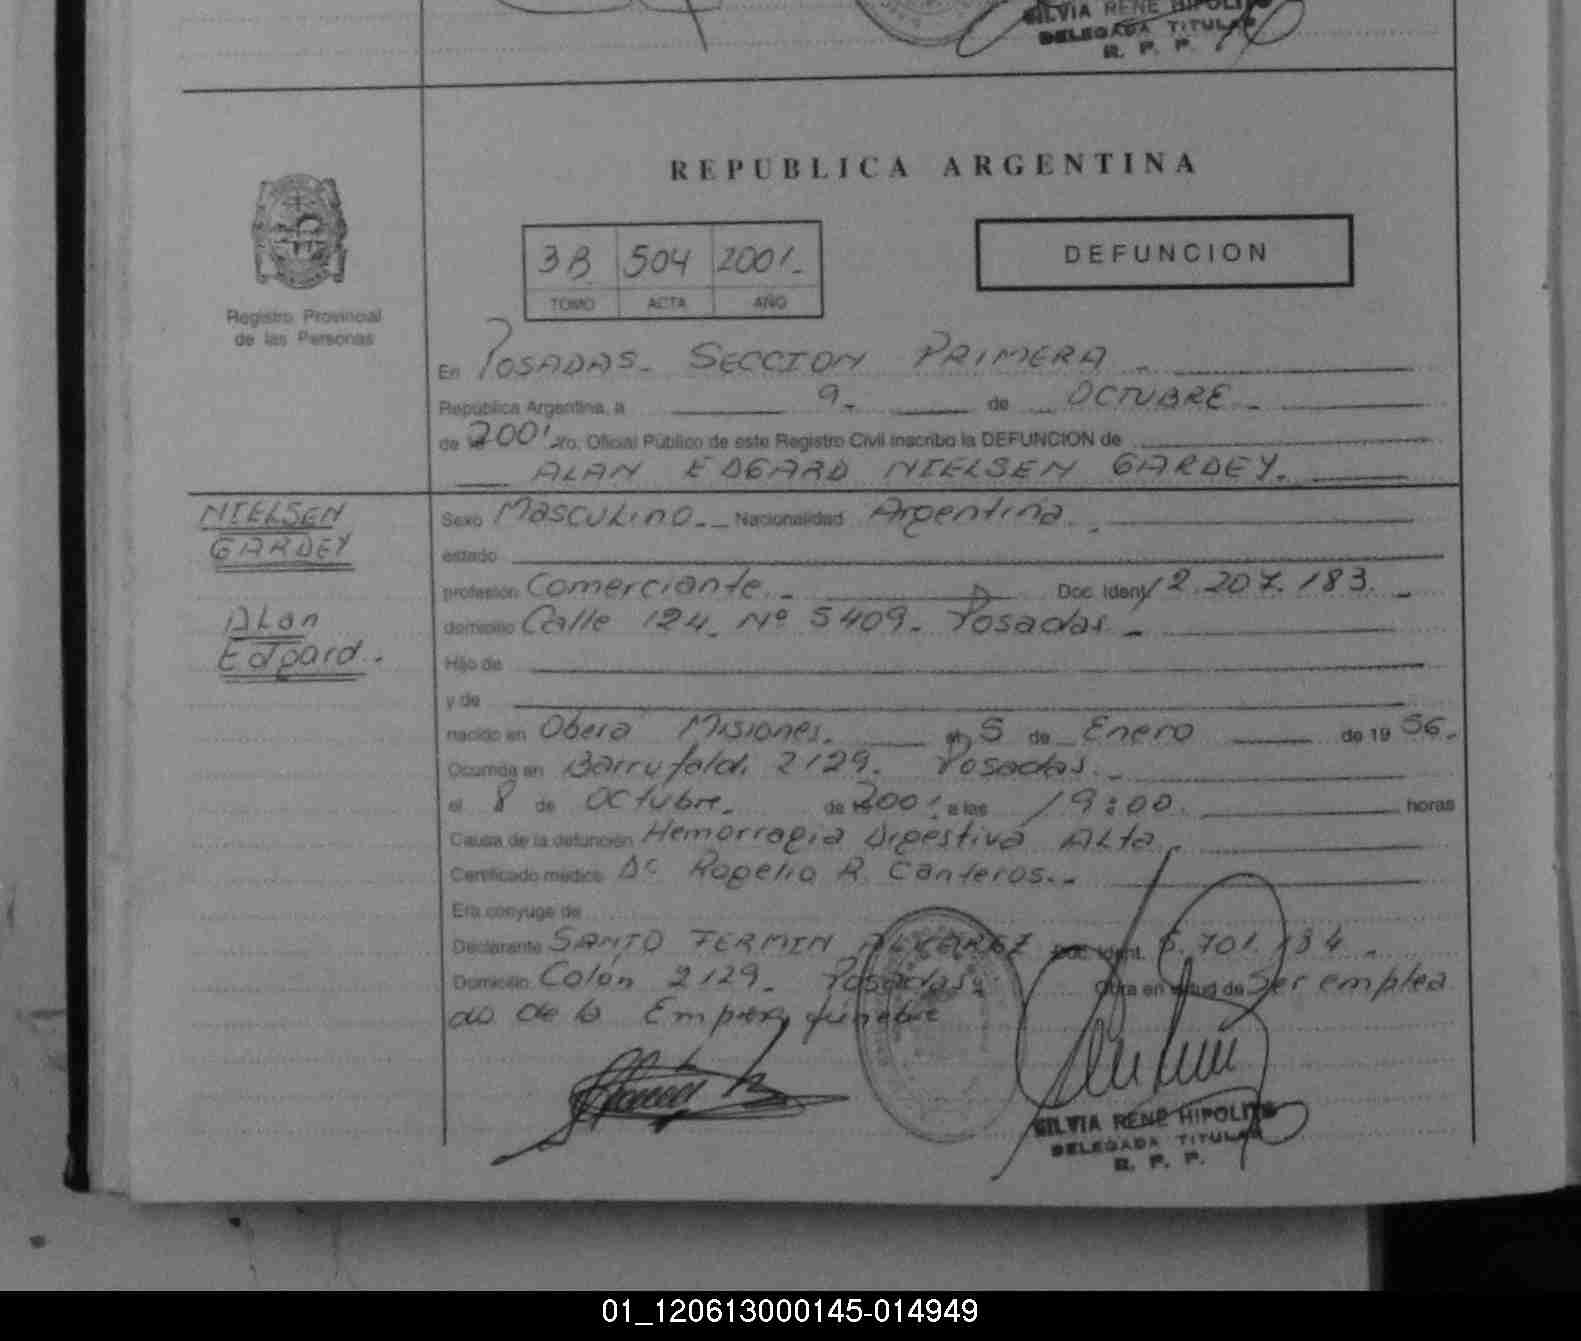 SILVIA RENE HIPOLITO
DELEGADA TITULAR
R. P. P.
REPUBLICA ARGENTINA
3B 504 2001.
TOMO ACTA AÑO
DEFUNCION
Registro Provincial
de las Personas
En POSADAS. SECCION PRIMERA
República Argentina, a 9. de OCTUBRE
de 2001. Yo, Oficial Público de este Registro Civil inscribo la DEFUNCION de
ALAN EDGARD NIELSEN GARDEY.
NIELSEN
GARDEY
Alan
Edgard.
Sexo Masculino. Nacionalidad Argentina
estado
profesión Comerciante. Doc. Ident. 12.207.183.
domicilio Calle 124. Nº 5409. Posadas.
Hijo de
y de
nacido en Oberá Misiones. el 5 de Enero de 1956.
Ocurrida en Barrufaldi 2129. Posadas.
el 8 de Octubre. de 2001. a las 19:00. horas
Causa de la defunción Hemorragia Digestiva Alta.
Certificado médico Dr Rogelio R. Canteros.
Era conyuge de
Declarante SANTO FERMIN ALCARAZ Doc. Ident. 5.701.134.
Domicilio Colón 2129. Posadas. Obra en virtud de Ser emplea
do de la Empresa fúnebre
SILVIA RENE HIPOLITO
DELEGADA TITULAR
R. P. P.
01_120613000145-014949